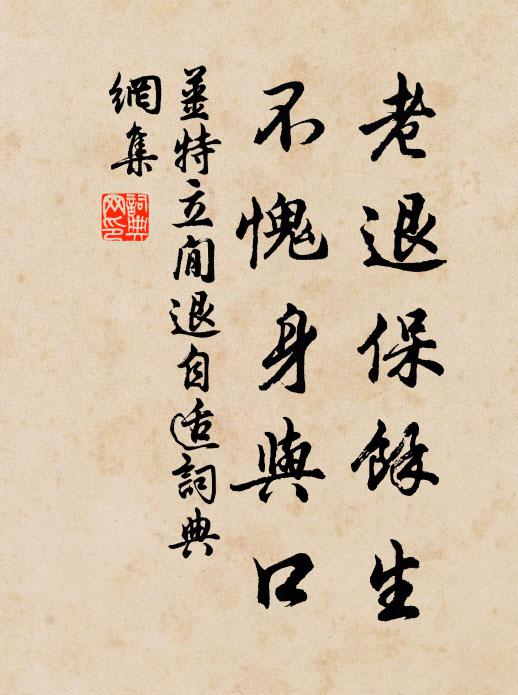 老退保餘生
不愧身與口
薑特立閒退自适詞典
網集
詞典
网印